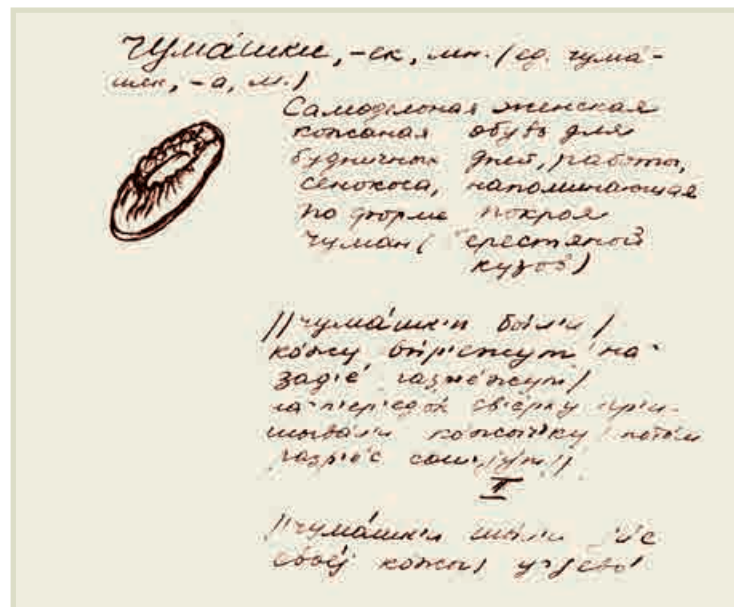 чума́шки, -ек, мн. (ед. чума́-
шек, -а, м.)
Самодельная женская
кожаная обувь для
будничных дней, работы,
сенокоса, напоминающая
по форме покроя
чуман (берестяной
кузов)
//чума́шк'и были/
ко́жу вы́р'ежут на
зад'е́ разр'е́жут/
на п'ер'едо́к св'е́рху при-
шыва́ли ко́жыч'ку потом
разр'е́с сошjу́т//
II
//чума́шк'и шы́ли из
свое́й кожы